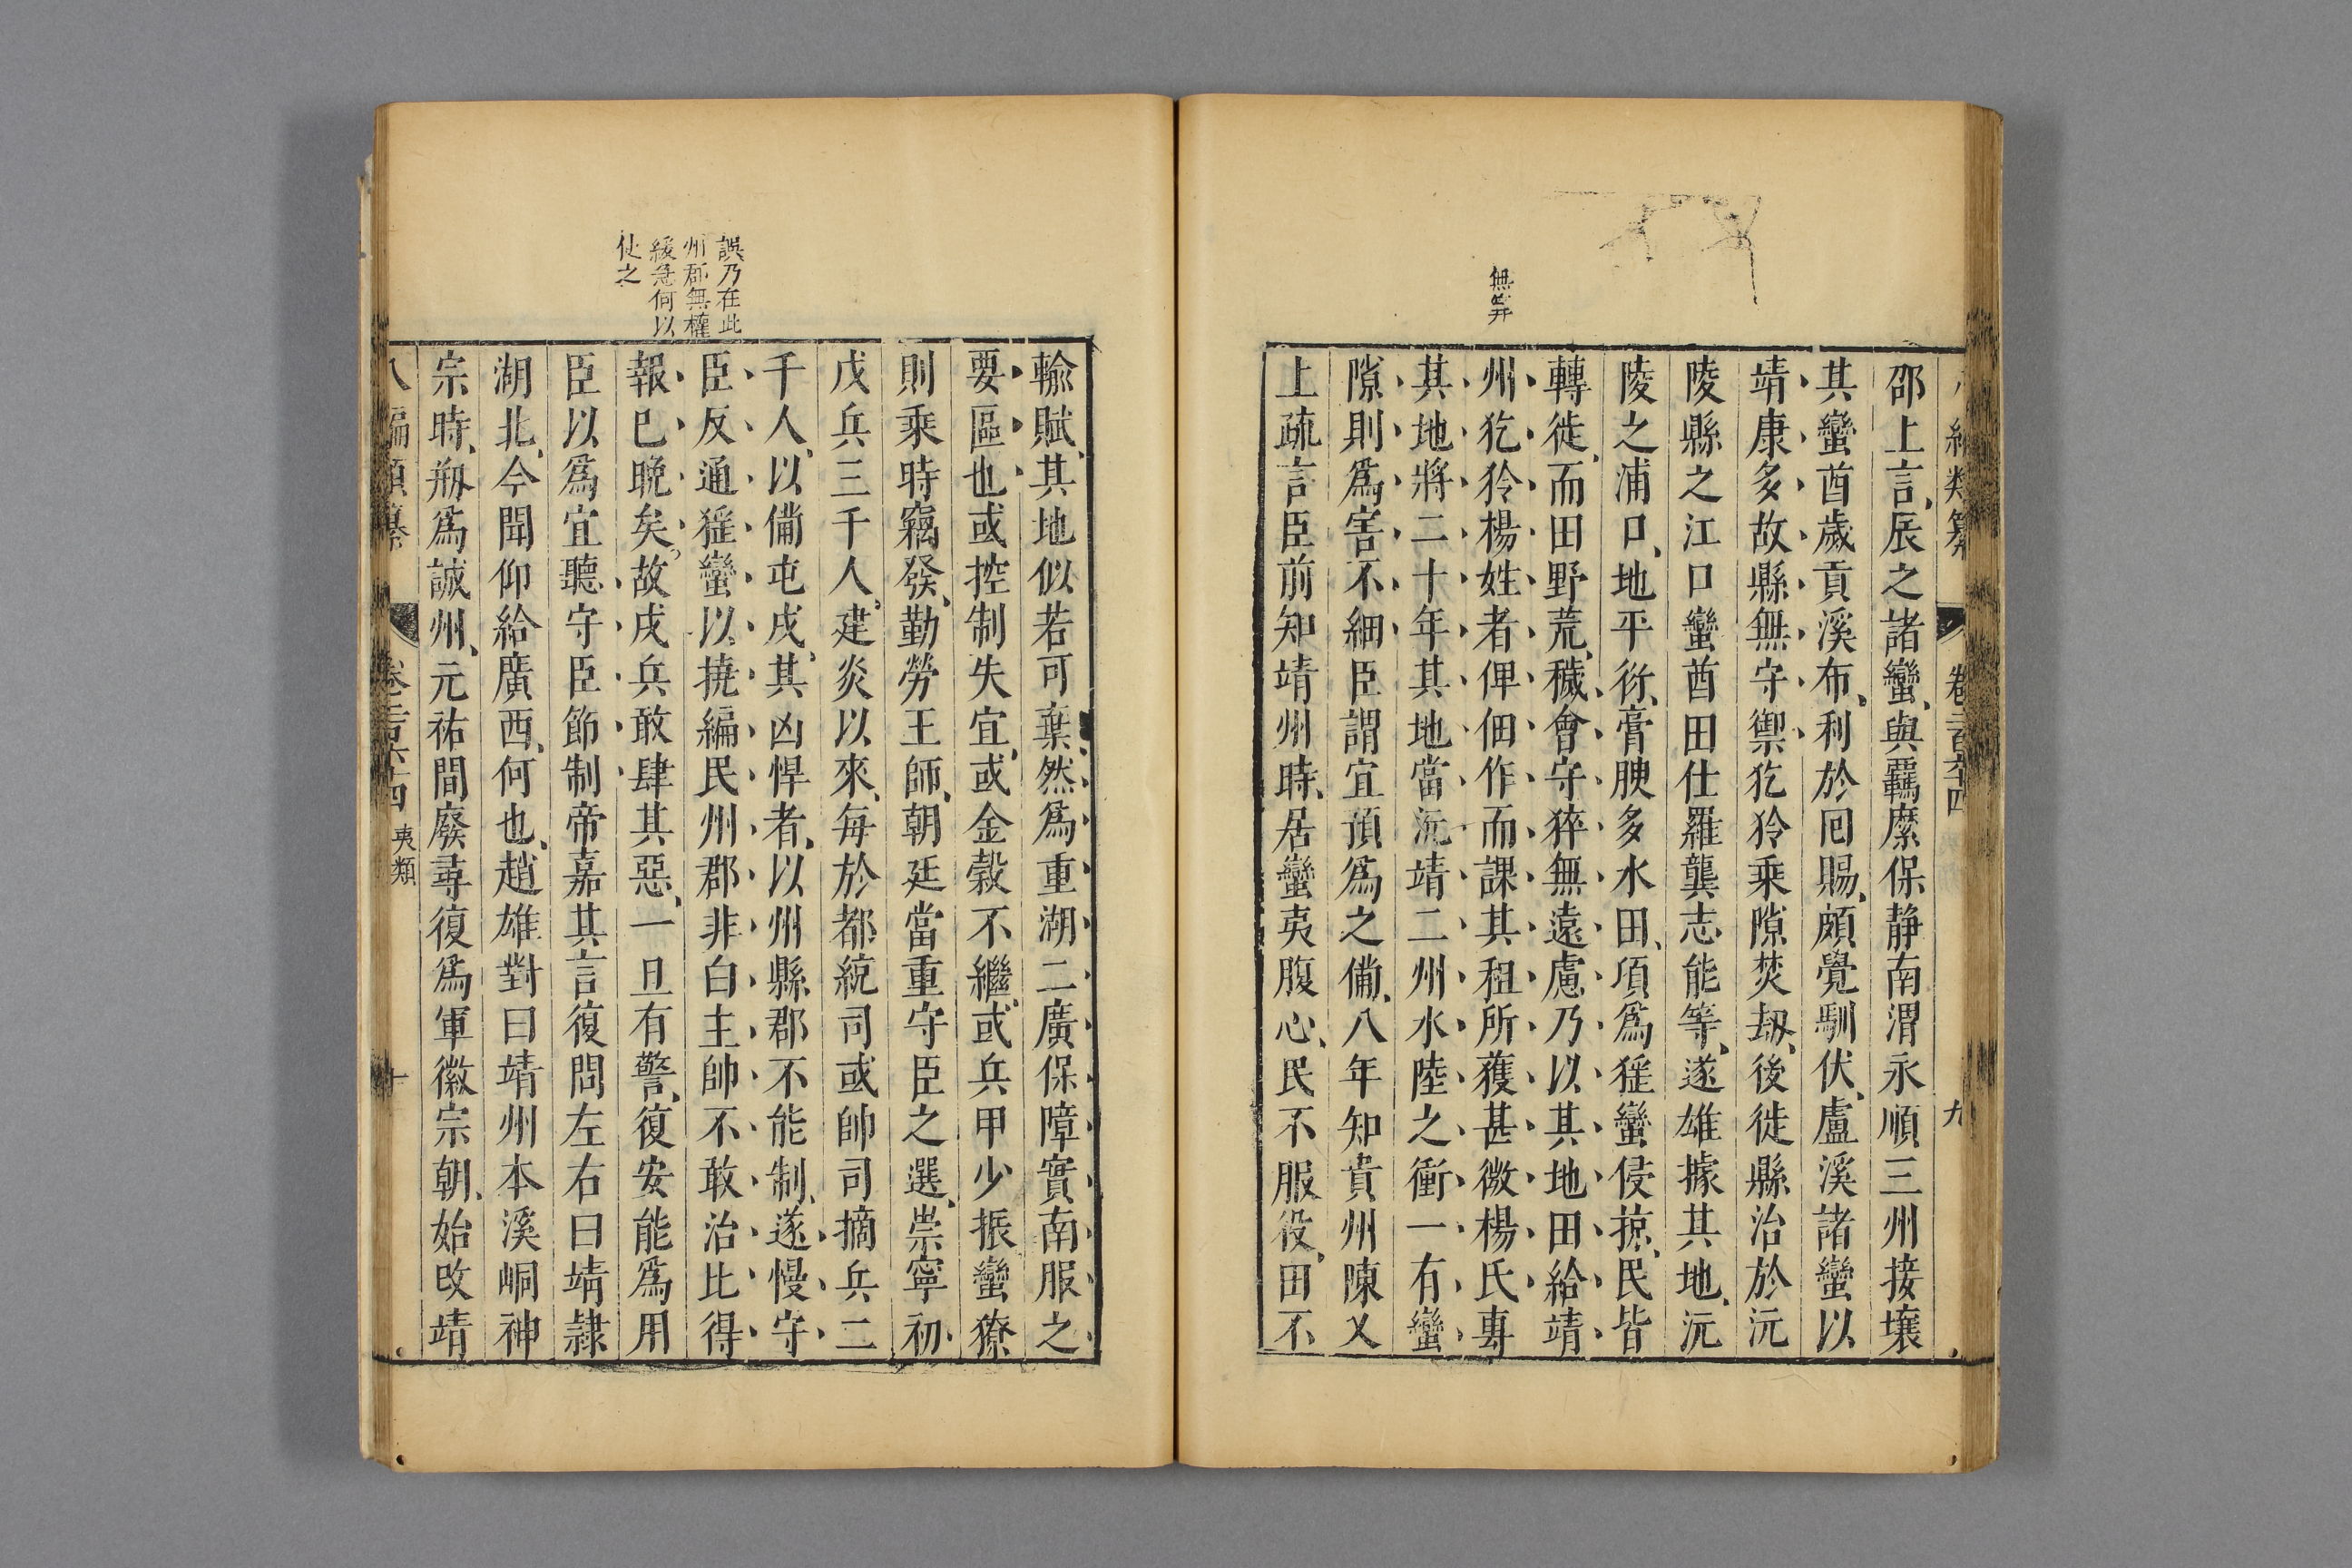 無筭
編類纂 卷二百六十四 九
邵上言辰之諸蠻與羈縻保静南渭永順三州接壤
其蠻酋歲貢溪布利於囘賜頗覺馴伏盧溪諸蠻以
靖康多故縣無守禦犵狑乗隙焚刼後徙縣治於沅
陵縣之江口蠻酋田仕羅龔志能等遂雄據其地沅
陵之浦口地平衍膏腴多水田項爲猺蠻侵掠民皆
轉徙而田野荒穢會守猝無遠慮乃以其地田給靖
州犵狑楊姓者俾佃作而課其租所獲甚微楊氏專
其地將二十年其地當沅靖二州水陸之衝一有蠻
隙則爲害不細臣謂宜預爲之備八年知貴州陳乂
上疏言臣前知靖州時居蠻夷腹心民不服役田不
誤乃在此
州郡無權
緩急何以
使之
輸賦其地似若可棄然爲重湖二廣保障實南服之
要區也或控制失宜或金榖不繼或兵甲少振蠻獠
則乘時竊發勤勞王師朝廷當重守臣之選崇寧初
戍兵三千人建炎以來每於都統司或帥司摘兵二
千人以備屯戍其凶悍者以州縣郡不能制遂慢守
臣反通猺蠻以撓編民州郡非白主帥不敢治比得
報巳晚矣故戍兵敢肆其惡一旦有警復安能爲用
臣以爲宜聽守臣節制帝嘉其言復問左右曰靖隷
湖北今聞仰給廣西何也趙雄對曰靖州本溪峒神
宗時刱爲誠州元祐間廢尋復爲軍徽宗朝始改靖
八編類纂 卷二百六十四 夷類 十